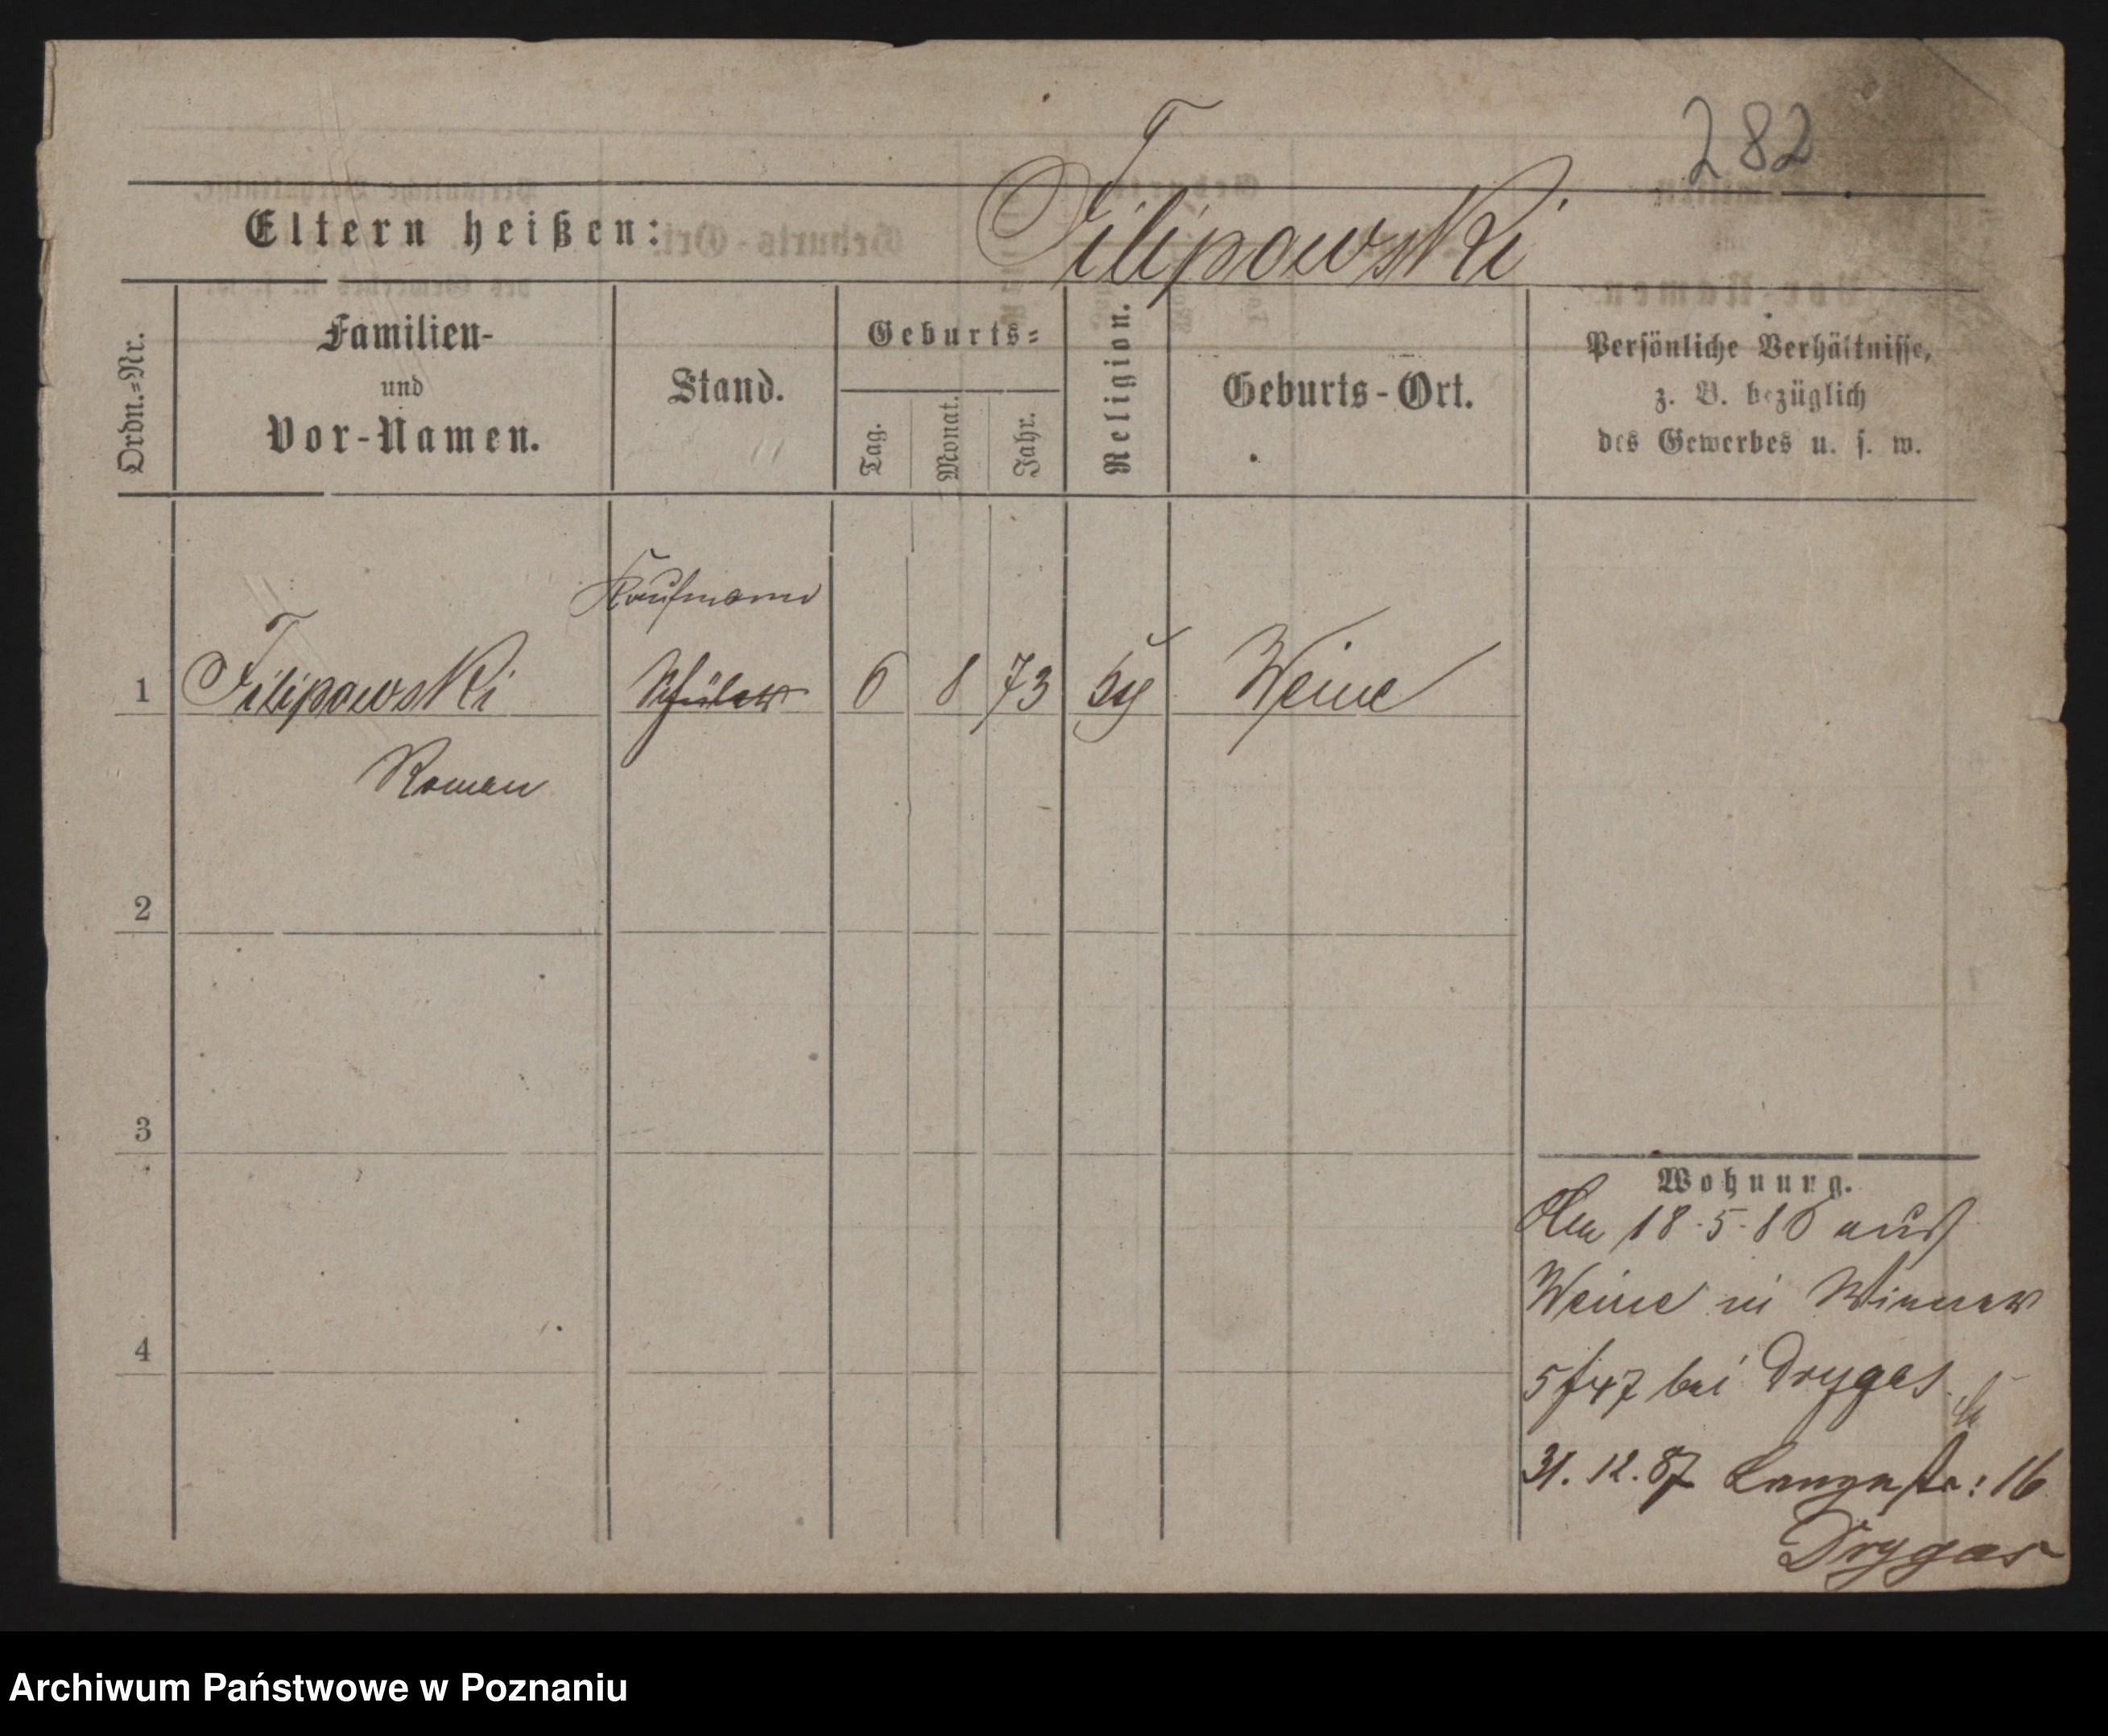 282
Eltern heißen: Filipowski
Ordn.=Nr.
Familien-
und
Vor-Namen.
Stand.
Geburts=
Tag.
Monat.
Jahr.
Religion.
Geburts-Ort.
Persönliche Verhältnisse,
z. B. bezüglich
des Gewerbes u. s. w.
Kaufmann
1 Filipowski Schüler 6 8 73 Weine
Roman
2
3
4
Wohnung.
18.5.86 aus
Weine in
5/47 bei Drygas
31.12.87 Langestr: 16
Drygas
Archiwum Państwowe w Poznaniu